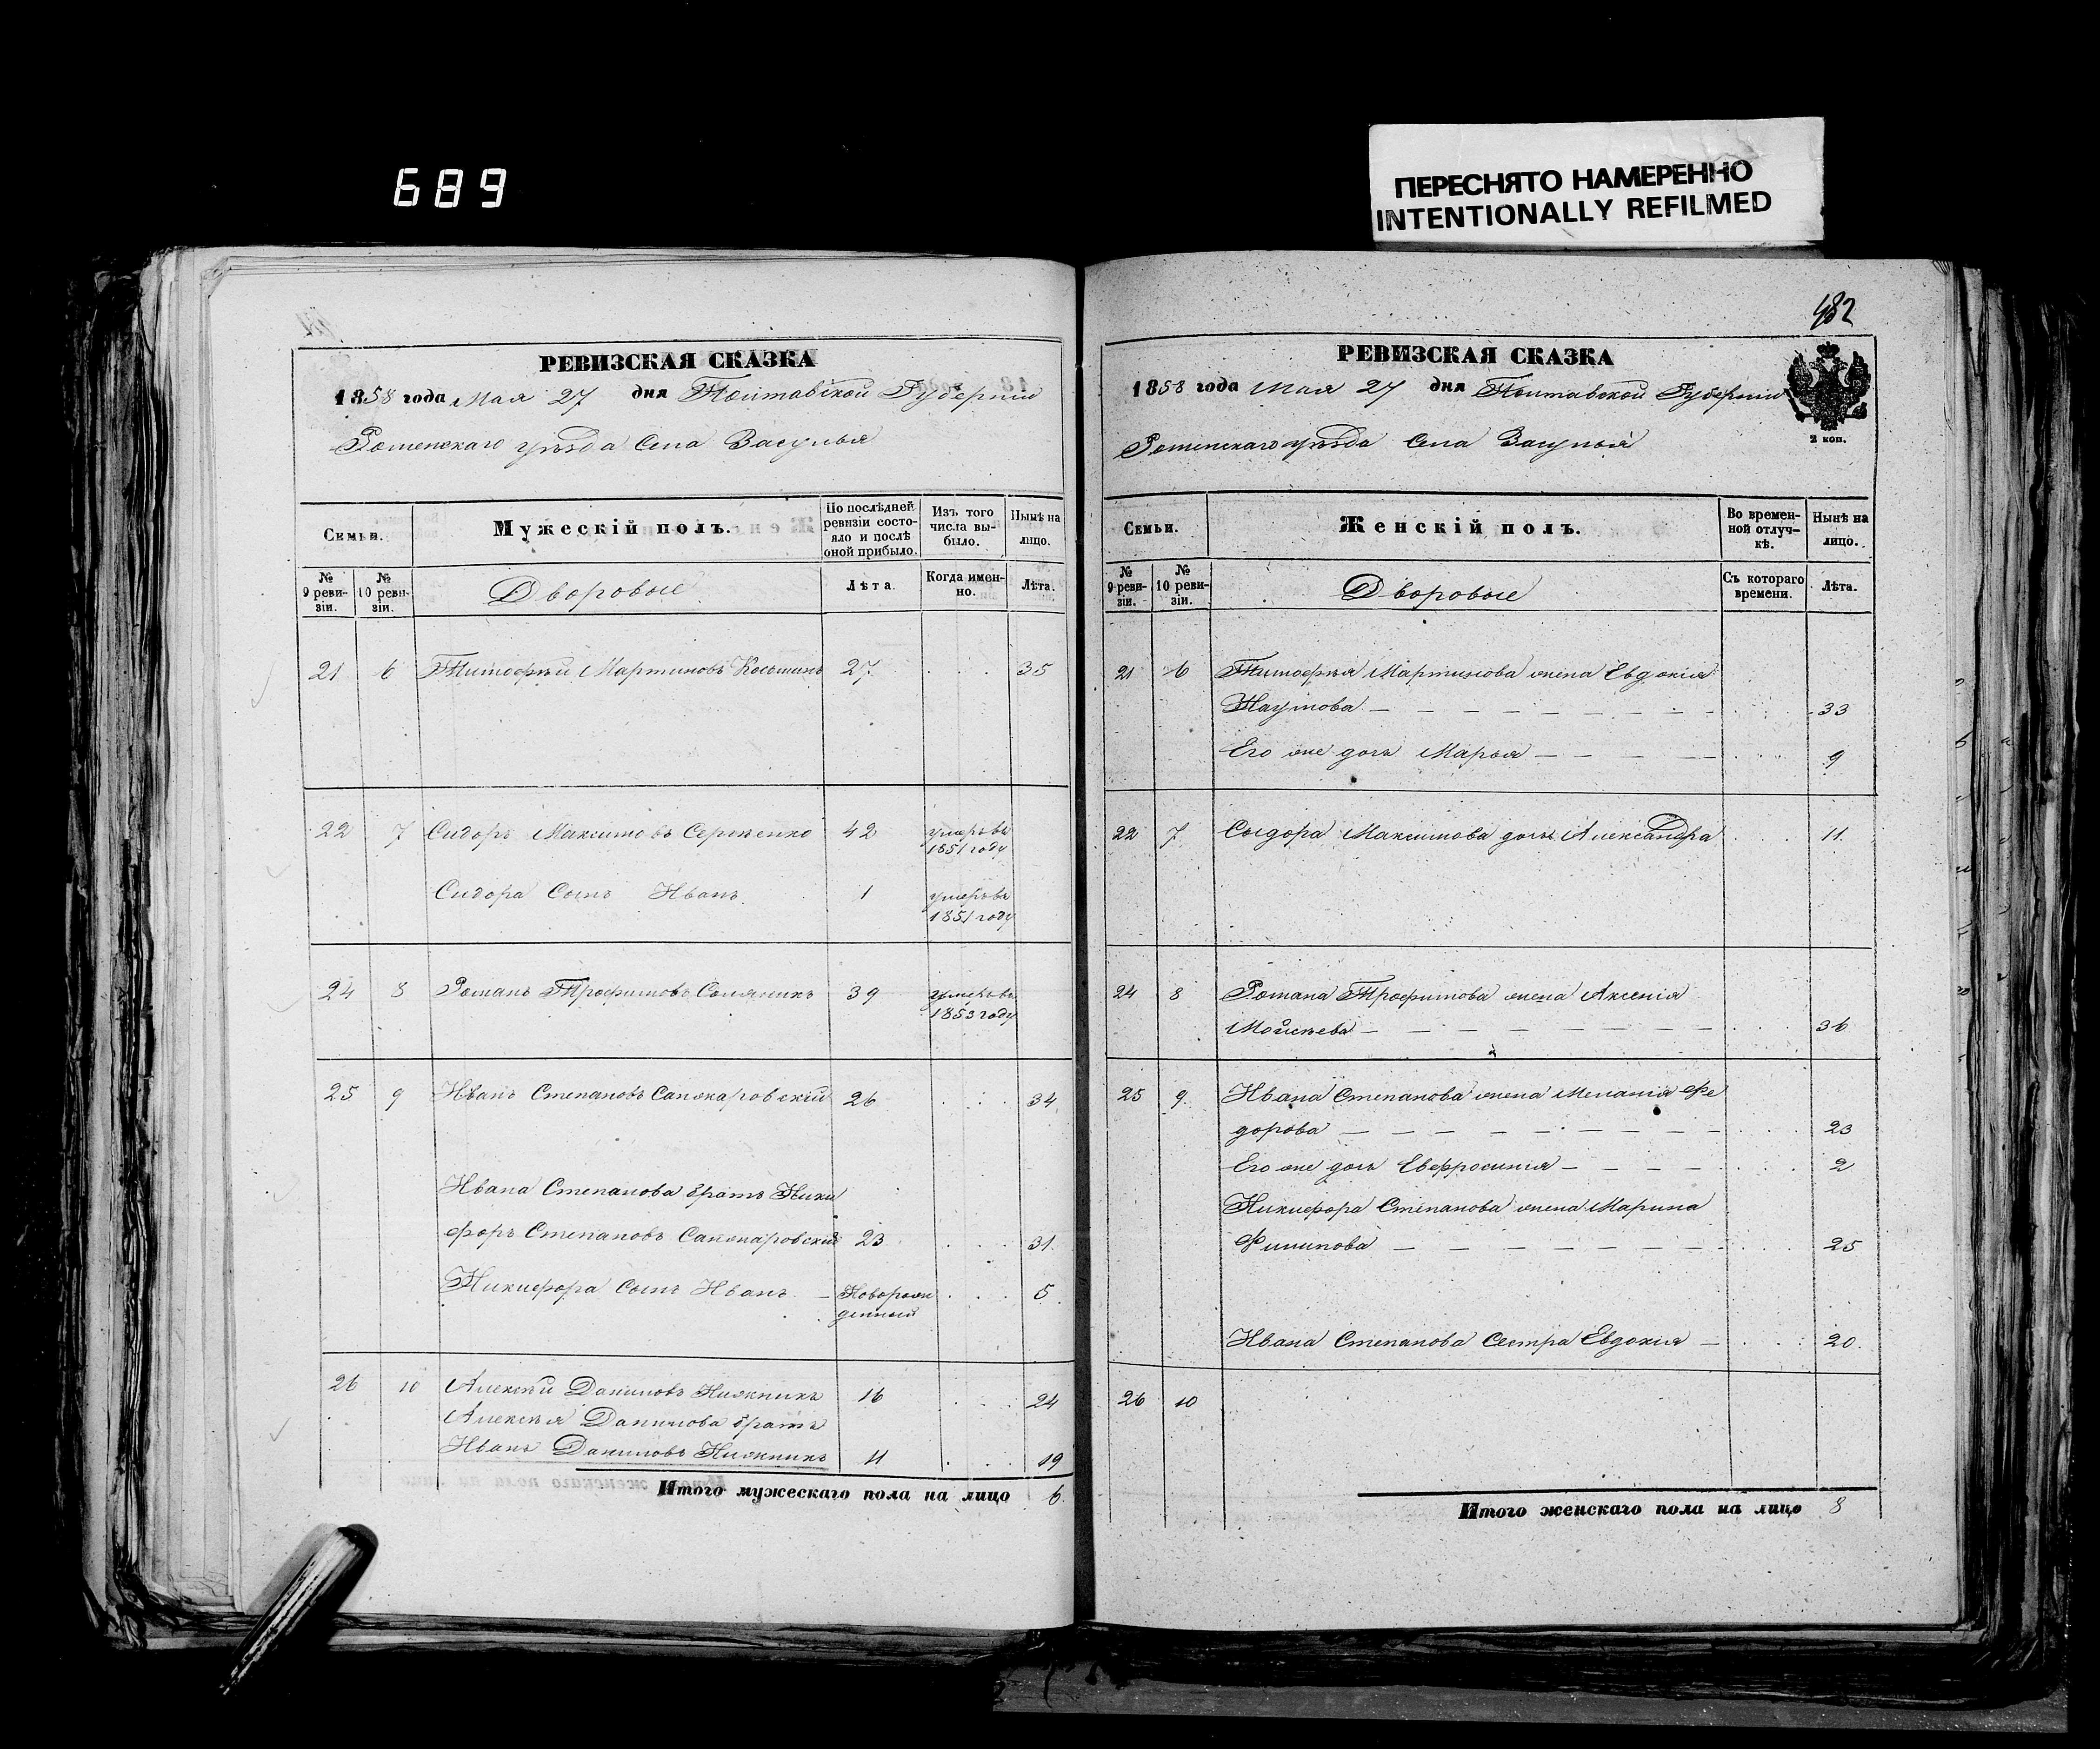 689
ПЕРЕСНЯТО НАМЕРЕННО
INTENTIONALLY REFILMED
РЕВИЗСКАЯ СКАЗКА
1858 года Мая 27 дня Полтавской Губернии
Роменскаго уѣзда Села Засулья
Семьи.
Мужескій полъ.
По послѣдней ревизіи состояло и послѣ оной прибыло.
Изъ того числа выбыло.
Нынѣ на лицо.
№ 9 ревизіи.
№ 10 ревизіи.
Дворовые
Лѣта.
Когда именно.
Лѣта.
21 6 Тимофѣй Мартиновъ 27 35
22 7 Сидоръ Максимовъ Сергѣенко 42 умеръ въ
1851 году
Сидора Сынъ Иванъ 1 умеръ въ
1851 году
24 8 Романъ Трофимовъ Соляникъ 39 умеръ въ
1853 году
25 9 Иванъ Степановъ Сапожаровскій 26 34
Ивана Степанова братъ Ники
форъ Степановъ Сапожаровскій 23 31
Никифора сынъ Иванъ — Новорож 5
денный
26 10 Алексѣй Даниловъ Нижникъ 16 24
Алексѣя Данилова братъ
Иванъ Даниловъ Нижникъ 11 19
Итого мужескаго пола на лицо 6
482
РЕВИЗСКАЯ СКАЗКА
1858 года Мая 27 дня Полтавской Губернии
2 коп.
Роменскаго уѣзда Села Засулья
Семьи.
Женскій полъ.
Во временной отлучкѣ.
Нынѣ на лицо.
№ 9 ревизіи.
№ 10 ревизіи.
Дворовые
Съ котораго времени.
Лѣта.
21 6 Тимофѣя Мартинова жена Евдокія
Наумова — 33
Его же дочь Марья — 9
22 7 Сидора Максимова дочь Александра 11
24 8 Романа Трофимова жена Аксенія
Моисѣева — 36
25 9 Ивана Степанова жена Меланія Фе
дорова — 23
Его же дочь Евфросинія — 2
Никифора Степанова жена Марина
Филипова — 25
Ивана Степанова Сестра Евдокія — 20
26 10
Итого женскаго пола на лицо 8